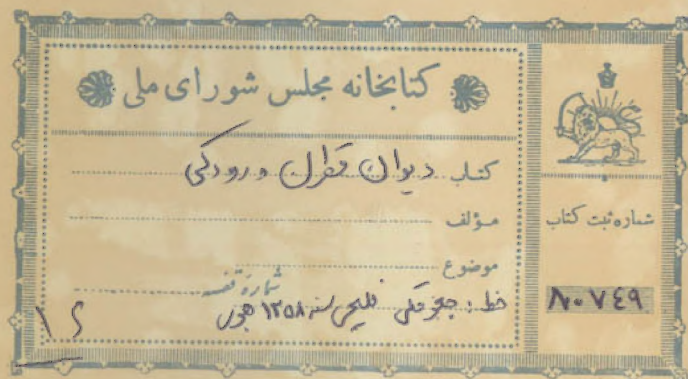 کتابخانه مجلس شورای ملی
کتاب دیوان قطران و رودکی
مؤلف
موضوع
شماره قفسه
خط: سنه ۱۲۵۸
شماره ثبت کتاب
۸۰۷۴۹